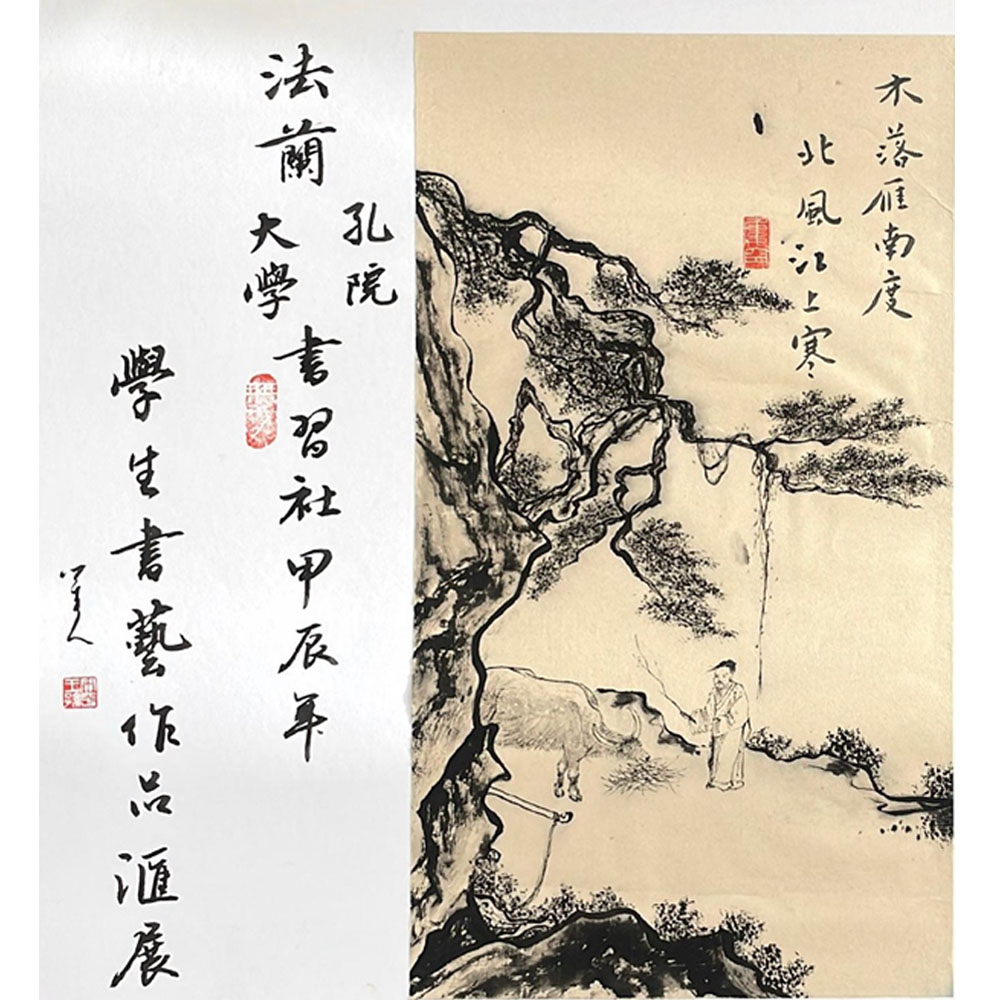 木落雁南度
北風江上寒
法蘭
孔院
大學
書習社甲辰年
學生書藝作品滙展